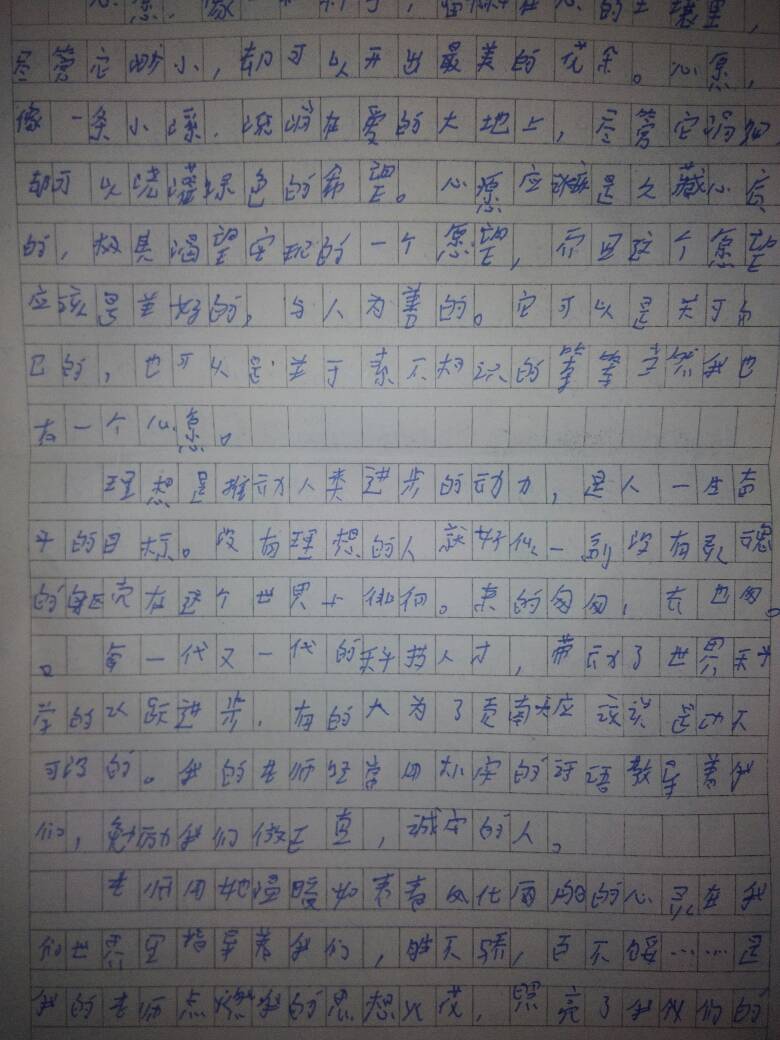 心愿，像一 ，  在心的土壤里，
尽管它 小，却可以开出最美的 。心愿，
像一条小溪，流淌在爱的大地上，尽管它涓细，
却可以浇灌绿色的希望。心愿应该是久藏心底
的，极其渴望实现的一个愿望，而且这个愿望
应该是美好的，与人为善的。它可以是关于自
己的，也可以是关于素不相识的等等当然我也
有一个心愿。
理想是推动人类进步的动力，是人一生奋
斗的目标。没有理想的人就好似一副没有灵魂
的躯壳在这个世界上徘徊。来的匆匆，去也匆
。每一代又一代的科技人才，带动了世界科
学的飞跃进步，有的人为了贡献 应该说是功不
可没的。我的老师经常用朴实的话语教导着我
们，勉励我们做正直，诚实的人。
老师用她温暖如春 的心灵在我
们 里指导着我们，胜不骄，百不馁……是
我的老师点燃我的思想火花，照亮了我 的